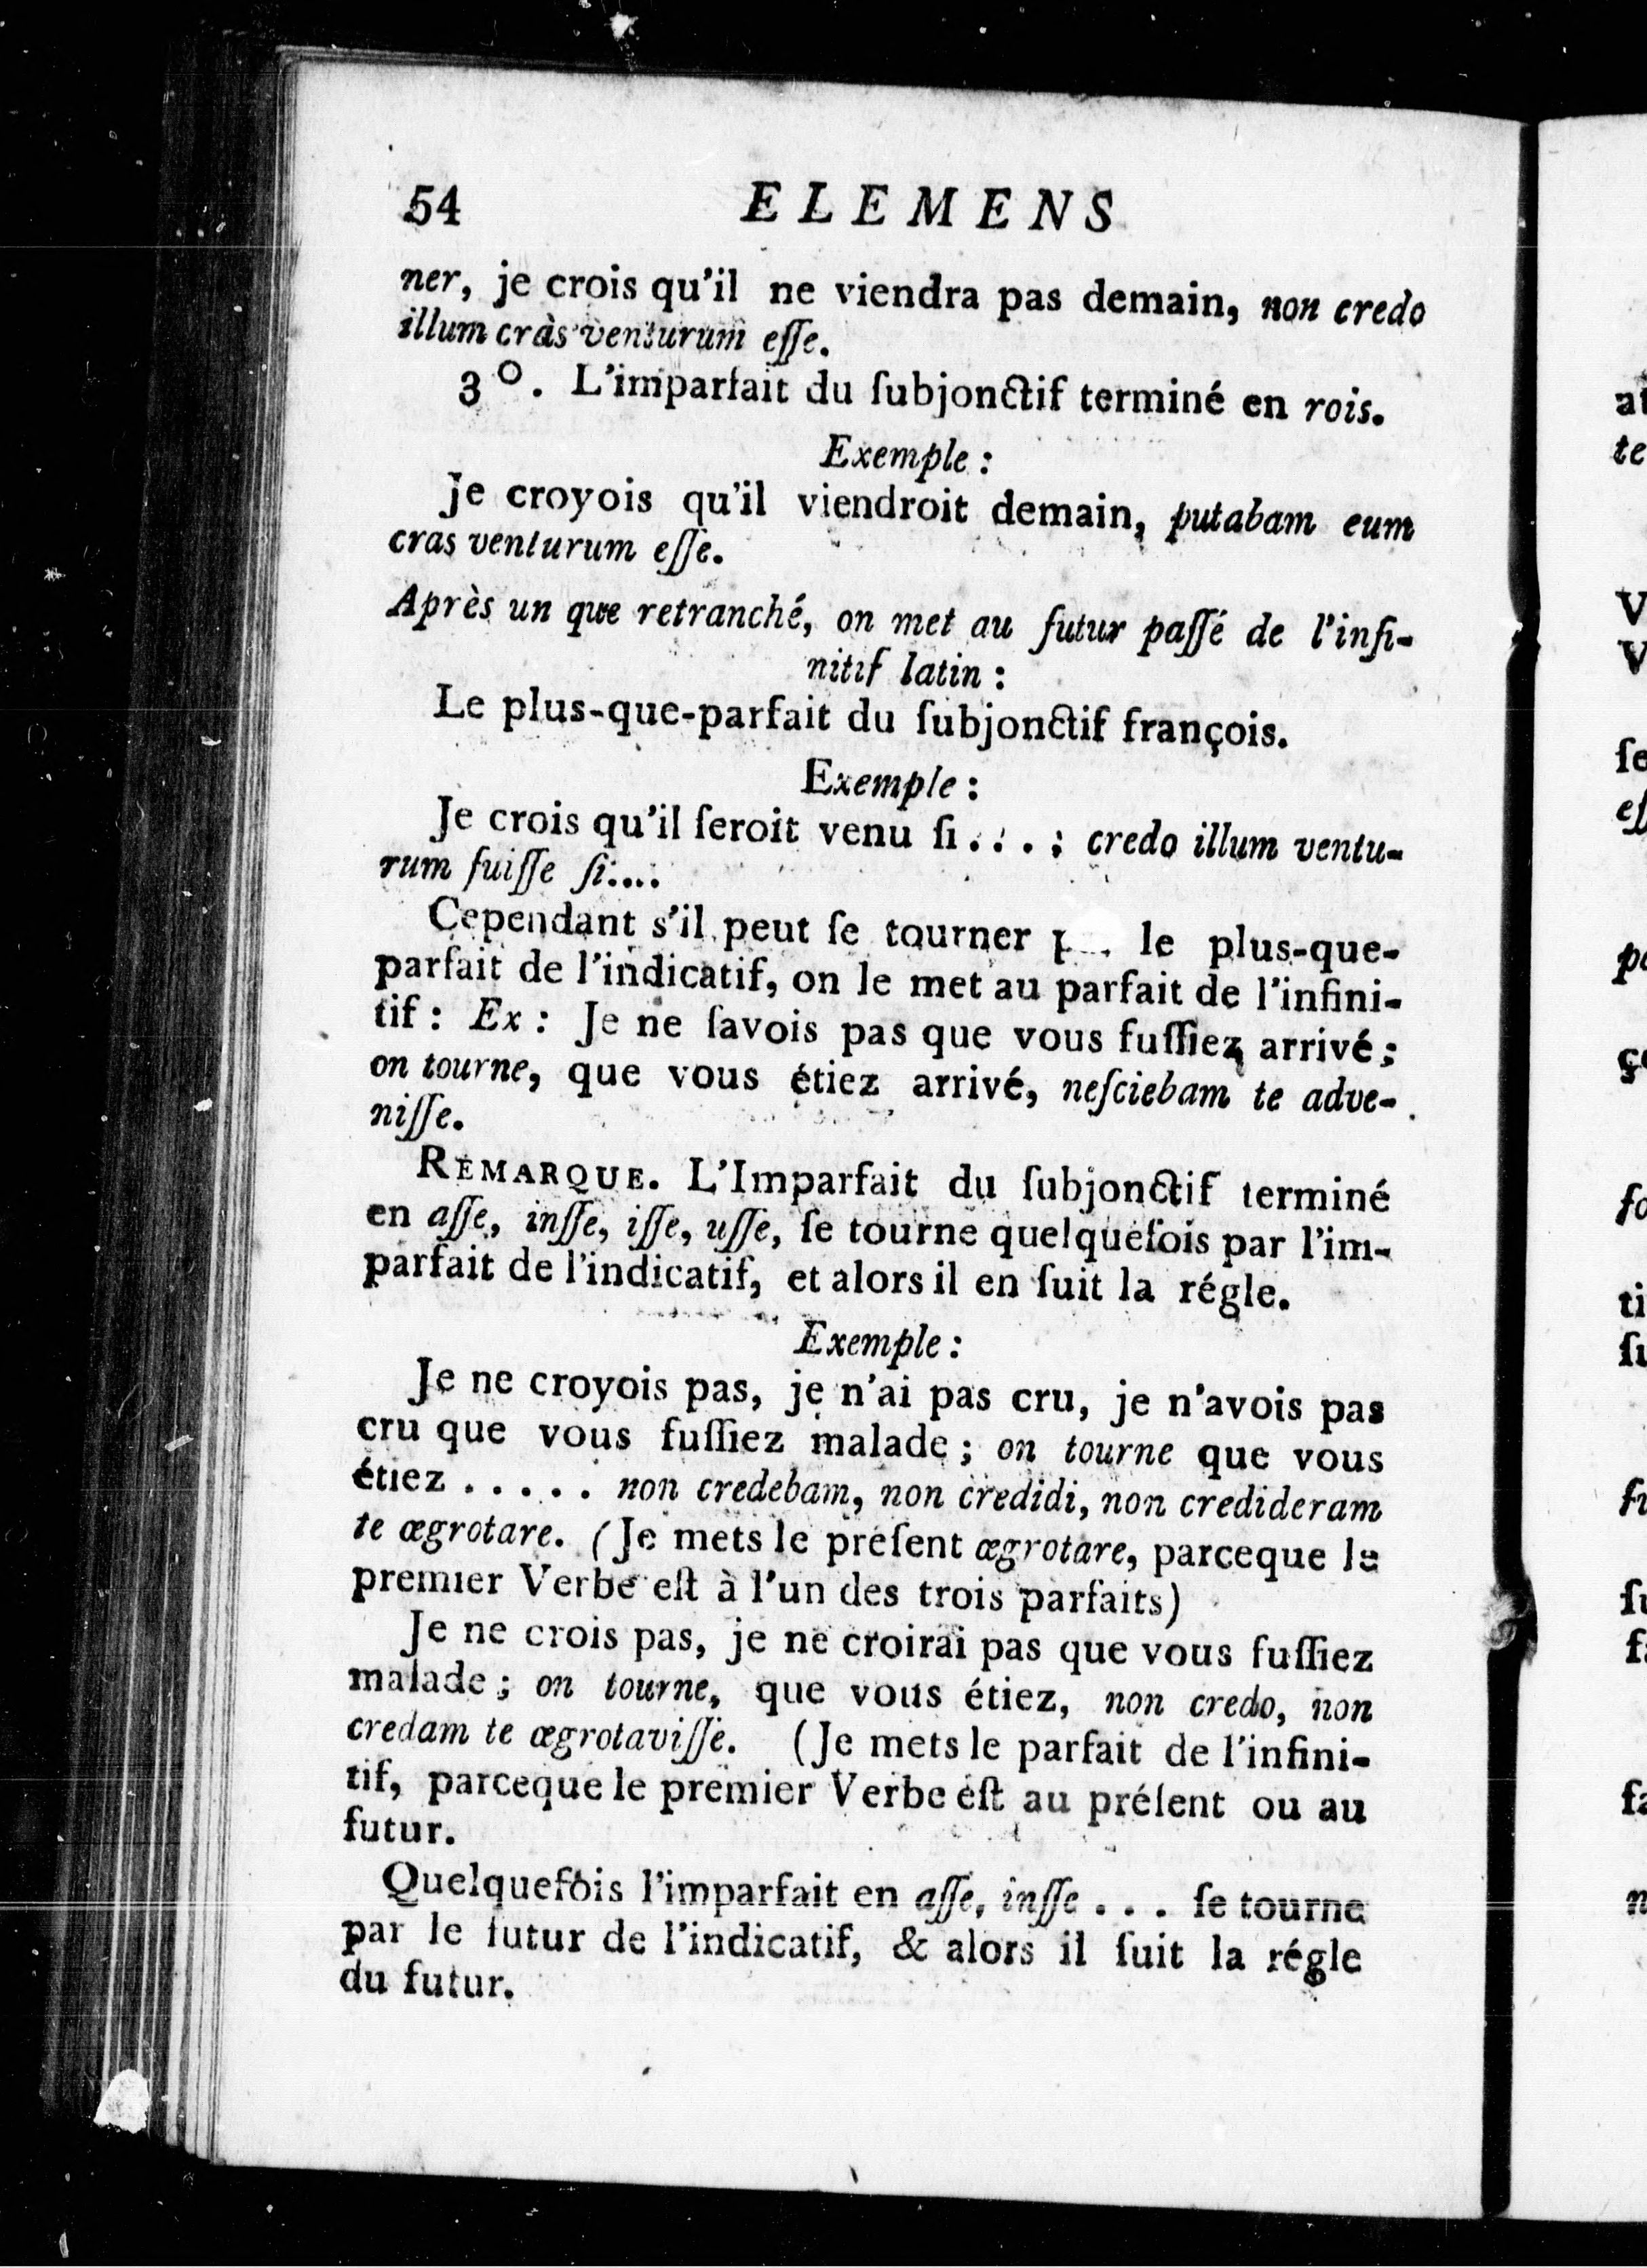 54 ELEMENS
ner, je crois qu'il ne viendra pas demain, non credo
illum cràs venturum eſſe.
3°. L'imparfait du ſubjonctif terminé en rois.
Exemple :
Je croyois qu'il viendroit demain, putabam eum
cras venturum eſſe.
Après un que retranché, on met au futur paſſé de l'infi-
nitif latin :
Le plus-que-parfait du ſubjonctif françois.
Exemple :
Je crois qu'il ſeroit venu ſi . . . ; credo illum ventu-
rum fuiſſe ſi....
Cependant s'il peut ſe tourner le plus-que-
parfait de l'indicatif, on le met au parfait de l'infini-
tif : Ex : Je ne ſavois pas que vous fuſſiez arrivé ;
on tourne, que vous étiez arrivé, neſciebam te adve-
niſſe.
REMARQUE. L'Imparfait du ſubjonctif terminé
en aſſe, inſſe, iſſe, uſſe, ſe tourne quelquefois par l'im-
parfait de l'indicatif, et alors il en ſuit la régle.
Exemple :
Je ne croyois pas, je n'ai pas cru, je n'avois pas
cru que vous fuſſiez malade ; on tourne que vous
étiez . . . . . non credebam, non credidi, non credideram
te ægrotare. (Je mets le préſent ægrotare, parceque le
premier Verbe eſt à l'un des trois parfaits)
Je ne crois pas, je ne croirai pas que vous fuſſiez
malade ; on tourne, que vous étiez, non credo, non
credam te ægrotaviſſe. (Je mets le parfait de l'infini-
tif, parceque le premier Verbe eſt au préſent ou au
futur.
Quelquefois l'imparfait en aſſe, inſſe . . . ſe tourne
par le futur de l'indicatif, & alors il ſuit la régle
du futur.